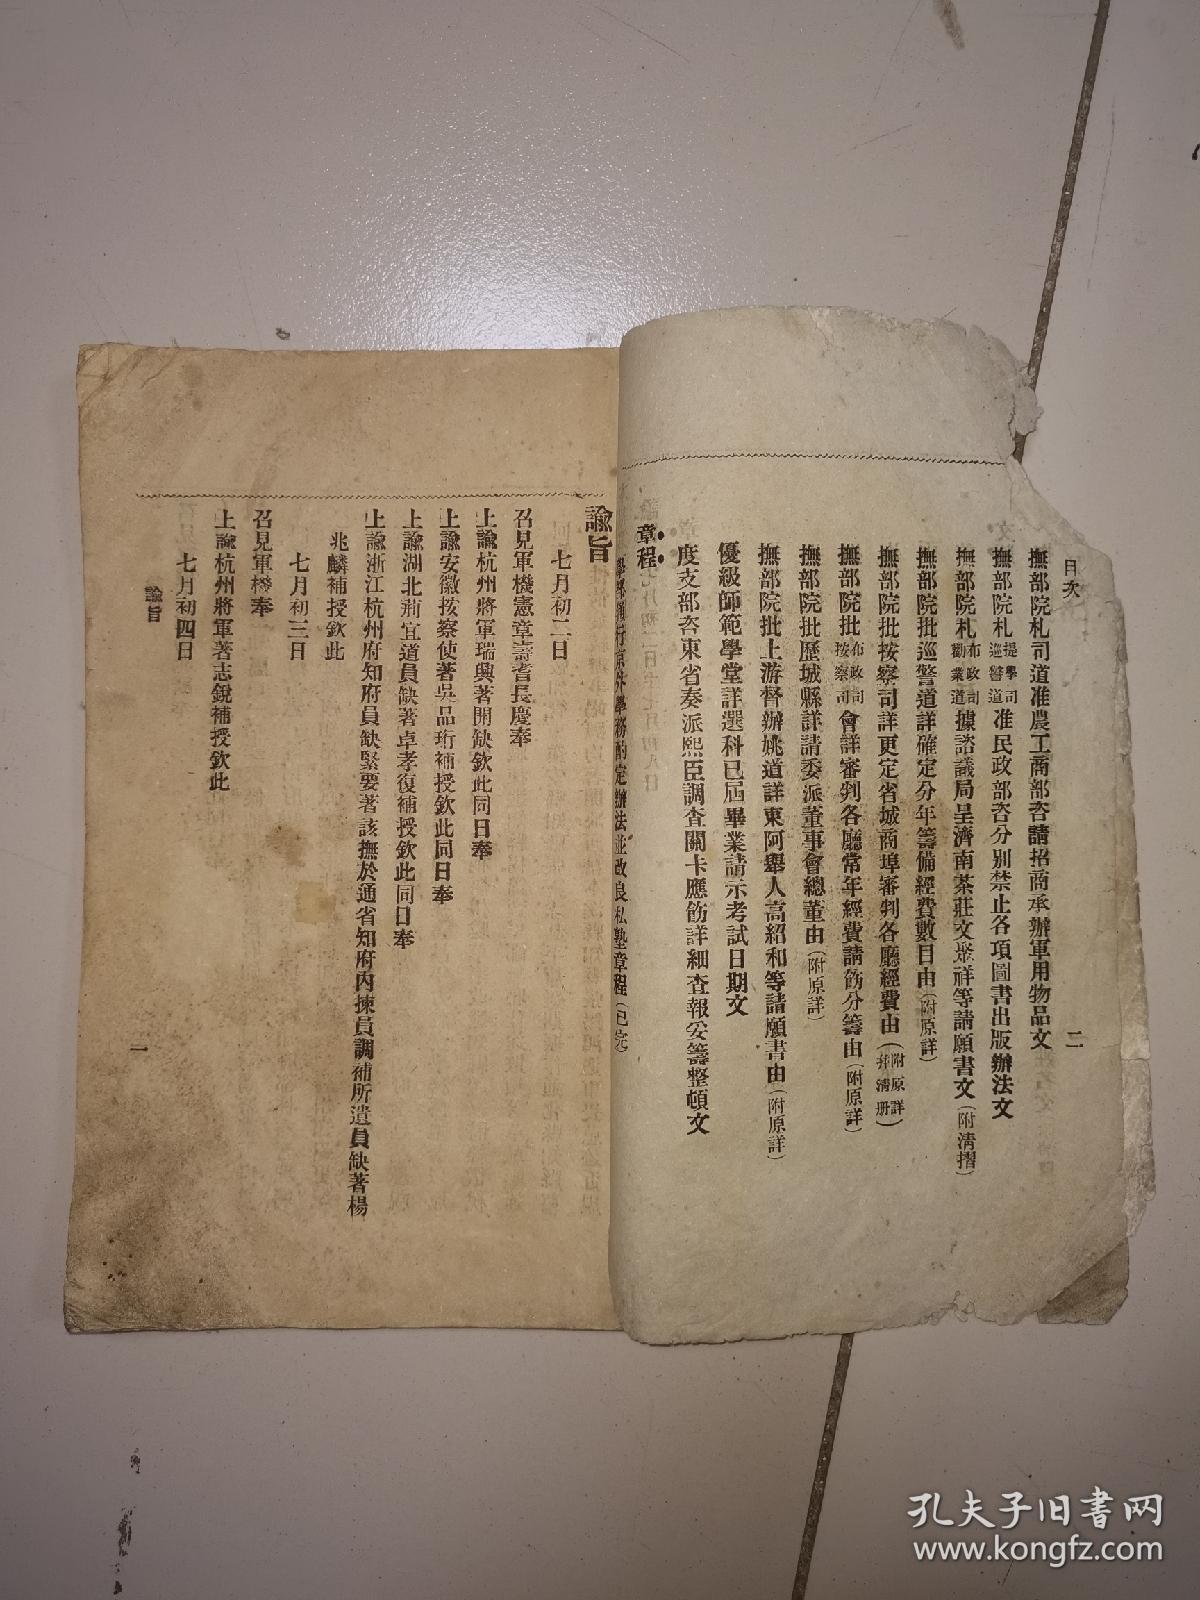 目次
二
撫部院札司道准農工商部咨請招商承辦軍用物品文
撫部院札提學司巡警道准民政部咨分別禁止各項圖書出版辦法文
撫部院札布政司勸業道據諮議局呈濟南茶莊文聚祥等請願書文(附清摺)
撫部院批巡警道詳確定分年籌備經費數目由(附原詳)
撫部院批按察司詳更定省城商埠審判各廳經費由(附原詳并清册)
撫部院批布政司按察司會詳審判各廳常年經費請飭分籌由(附原詳)
撫部院批歷城縣詳請委派董事會總董由(附原詳)
撫部院批上游督辦姚道詳東阿舉人高紹和等請願書由(附原詳)
優級師範學堂詳選科已屆畢業請示考試日期文
度支部咨東省奏派熙臣調查關卡應飭詳細查報妥籌整頓文
章程
學部通行京外學務酌定辦法並改良私塾章程(已完)
諭旨
七月初二日
召見軍機憲章壽耆長慶奉
上諭杭州將軍瑞興著開缺欽此同日奉
上諭安徽按察使著吳品珩補授欽此同日奉
上諭湖北荊宜道員缺著卓孝復補授欽此同日奉
上諭浙江杭州府知府員缺緊要著該撫於通省知府內揀員調補所遺員缺著楊
兆麟補授欽此
七月初三日
召見軍機奉
上諭杭州將軍著志銳補授欽此
七月初四日
諭旨
一
孔夫子旧书网
www.kongfz.com